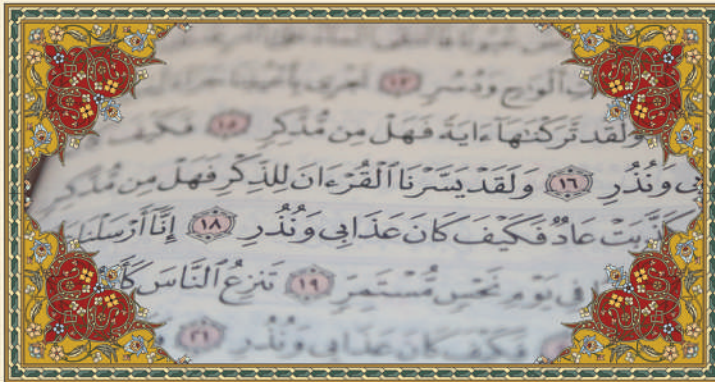 أَلْوَٰحٍ وَدُسُرٍ ١٣ تَجْرِي بِأَعْيُنِنَا جَزَآءً
وَلَقَد تَّرَكْنَٰهَآ ءَايَةً فَهَلْ مِن مُّدَّكِرٍ ١٥ فَكَيْفَ
وَنُذُرِ ١٦ وَلَقَدْ يَسَّرْنَا ٱلْقُرْءَانَ لِلذِّكْرِ فَهَلْ مِن مُّدَّكِرٍ
كَذَّبَتْ عَادٌ فَكَيْفَ كَانَ عَذَابِي وَنُذُرِ ١٨ إِنَّآ أَرْسَلْنَا
فِي يَوْمِ نَحْسٍ مُّسْتَمِرٍّ ١٩ تَنزِعُ ٱلنَّاسَ
فَكَيْفَ كَانَ عَذَابِي وَنُذُرِ ٢١